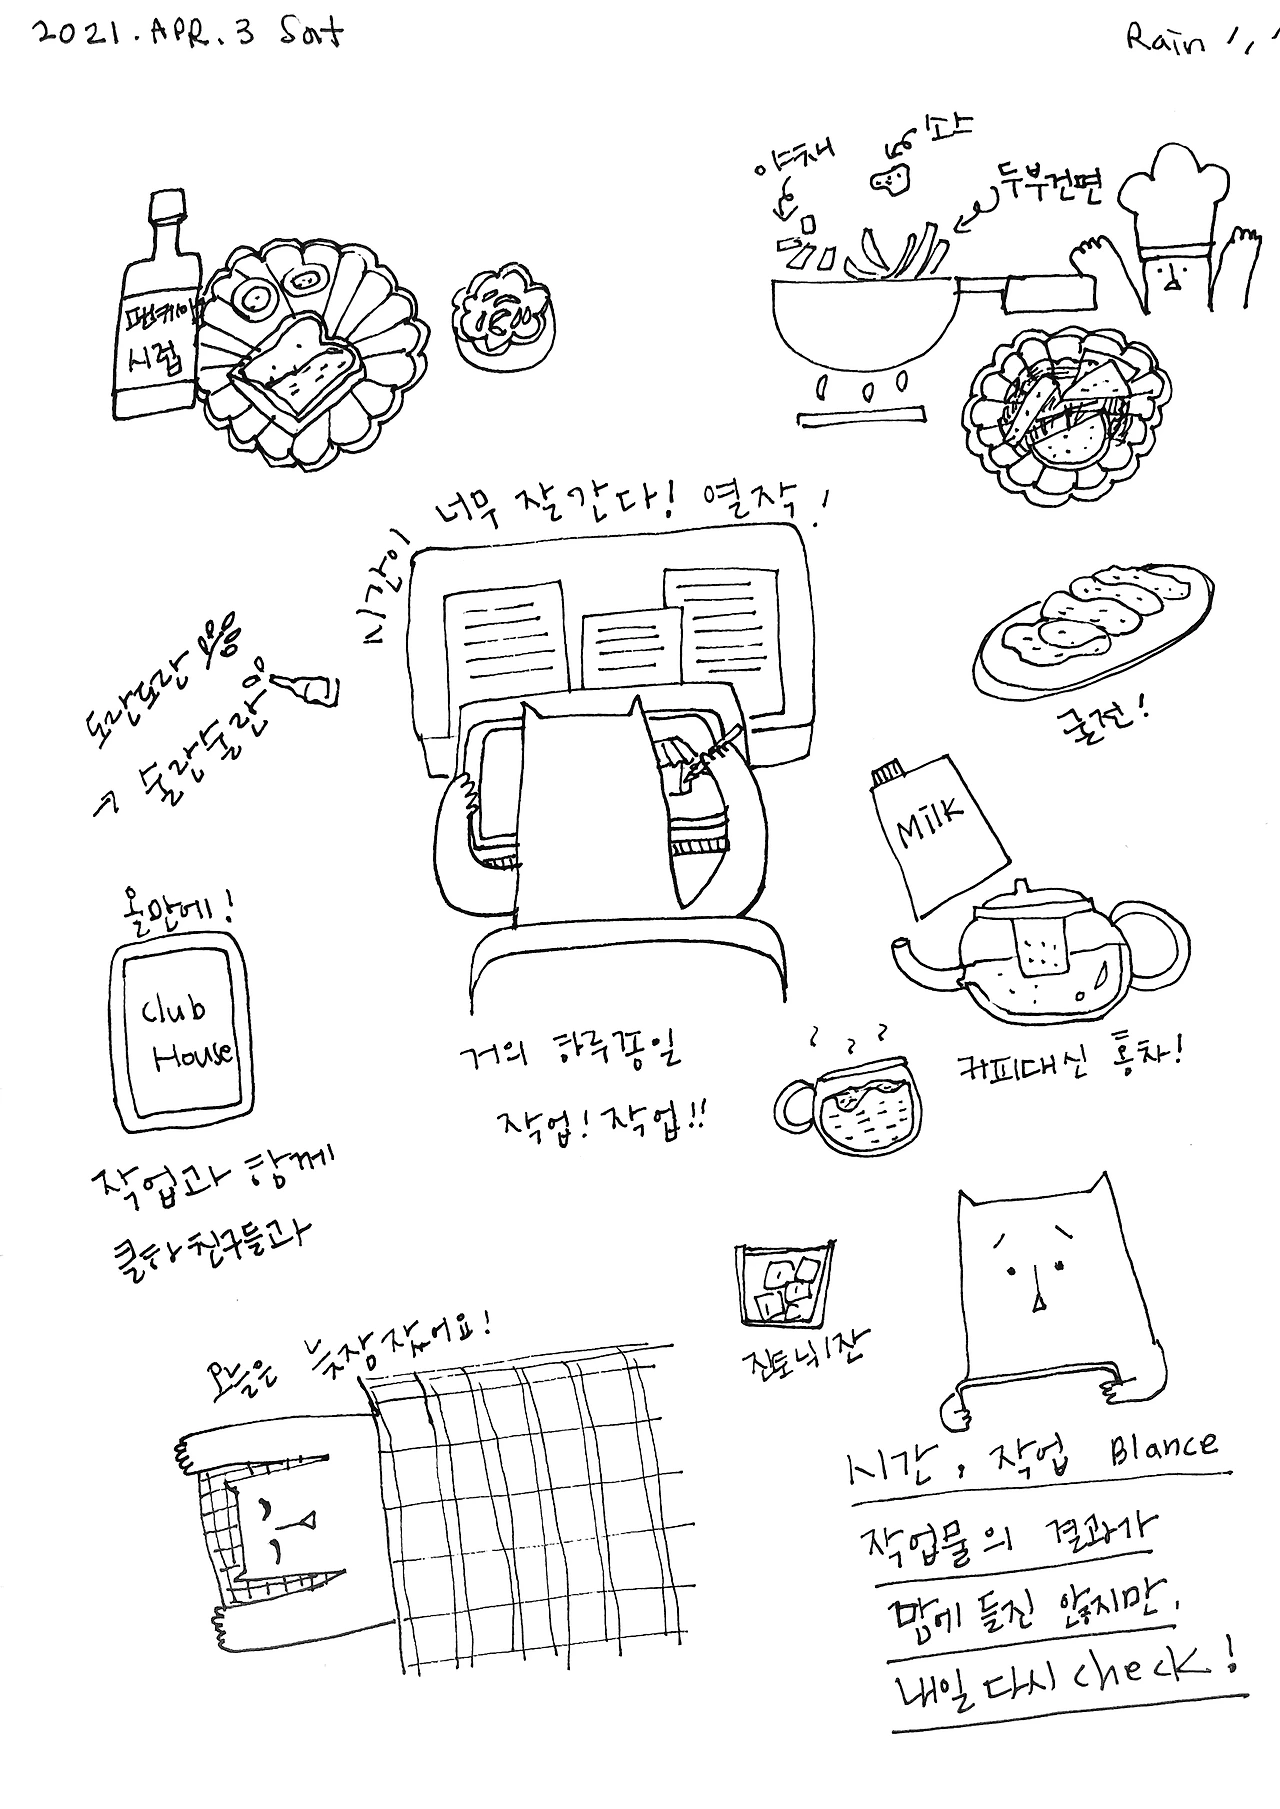 2021.APR.3 Sat
Rain
야채
소스
두부건면
팬케이
시럽
시간이 너무 잘 간다! 열작!
도란도란
→ 술란술란
굴전!
Milk
올만에!
Club
House
거의 하루종일
작업! 작업!!
커피대신 홍차!
작업과 함께
클하친구들과
진토닉1잔
오늘은 늦장 잤어요!
시간, 작업 Blance
작업물의 결과가
맘에 들진 않지만,
내일 다시 check!